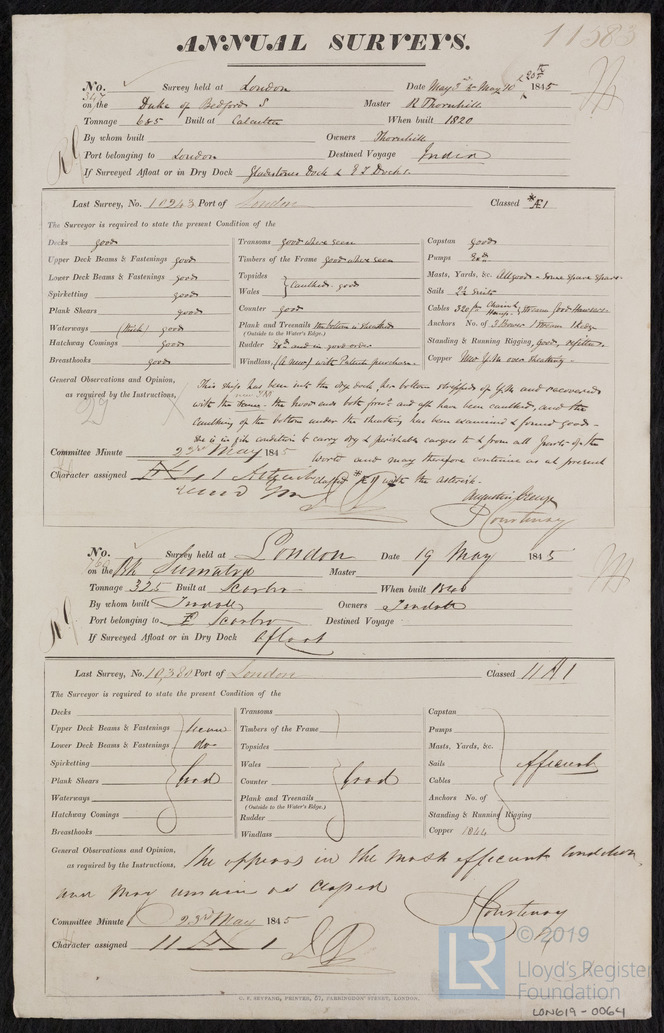 11583
ANNUAL SURVEYS.
No. 347 Survey held at London Date May 3rd to May 20th 1845
on the Duke of Bedford S Master R Thornhill
Tonnage 685 Built at Calcutta When built 1820
By whom built Owners Thornhill
Port belonging to London Destined Voyage India
If Surveyed Afloat or in Dry Dock Gladstones Dock & E I Docks
Last Survey, No. 10243 Port of London Classed *Æ1
The Surveyor is required to state the present Condition of the
Decks good
Upper Deck Beams & Fastenings good
Lower Deck Beams & Fastenings good
Spirketting good
Plank Shears good
Waterways (thick) good
Hatchway Comings good
Breasthooks good
Transoms good where seen
Timbers of the Frame good where seen
Topsides
Wales } Caulked good
Counter good
Plank and Treenails the bottom is sheathed
(Outside to the Water's Edge.)
Rudder and in good order
Windlass, (A new) with Patent purchase
Capstan good
Pumps
Masts, Yards, &c. All good - Some spare spars
Sails 2½ Suits
Cables 320 fm Chain & Hemp Stream Good Hawsers
Anchors No. of 3 Bower 1 Stream 1 Kedge
Standing & Running Rigging, good, refitted
Copper New Y.M. over sheathing
General Observations and Opinion,
as required by the Instructions,
This ship has been into the dry dock, her bottom stripped of Y.M and recovered
with the same - the Wood ends both fore & aft have been caulked, and the
caulking of the bottom under the sheathing has been examined & found good -
She is in condition to carry dry & perishable cargoes to & from all parts of the
World and may therefore continue as at present
classed *Æ1 with the asterisk.
Committee Minute 23rd May 1845
Character assigned Æ 1
Augustin Creuze
J Courtenay
No. Survey held at London Date 19 May 1845
on the Bk Sumatra Master
Tonnage 325 Built at Scarbro When built 1840
By whom built Tindall Owners Tindall
Port belonging to Scarbro Destined Voyage
If Surveyed Afloat or in Dry Dock Afloat
Last Survey, No. 10,380 Port of London Classed 11 A 1
The Surveyor is required to state the present Condition of the
Decks
Upper Deck Beams & Fastenings
Lower Deck Beams & Fastenings do
Spirketting
Plank Shears Good
Waterways
Hatchway Comings
Breasthooks
Transoms
Timbers of the Frame
Topsides
Wales
Counter Good
Plank and Treenails
(Outside to the Water's Edge.)
Rudder
Windlass
Capstan
Pumps
Masts, Yards, &c.
Sails Efficient
Cables
Anchors No. of
Standing & Running Rigging
Copper 1844
General Observations and Opinion,
as required by the Instructions,
She appears in the most efficient Condition
and may remain as Classed
J Courtenay
Committee Minute 23rd May 1845
Character assigned 11 A 1
C. F. SEYFANG, PRINTER, 57, FARRINGDON STREET, LONDON.
LR
© 2019
Lloyd's Register
Foundation
LON619-0064